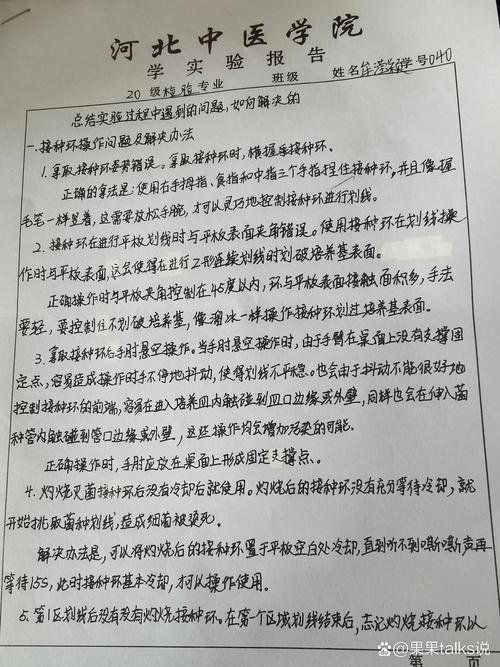 河北中医学院
学实验报告
20级检验专业 班级 姓名 学号040
总结实验过程中遇到的问题,如何解决的
一.接种环操作问题及解决办法
1.拿取接种环姿势错误。拿取接种环时,横握毛接种环.
正确的方法是:使用右手拇指、食指和中指三个手指捏住接种环,并且像握
毛笔一样竖着,这需要放松手腕,才可以灵巧地控制接种环进行划线。
2.接种环在进行平板划线时与平板表面夹角错误。使用接种环在划线操
作时与平板表面,这会使得在进行Z形连续划线时划破培养基表面。
正确操作时与平板夹角控制在45度以内,环与平板表面接触面积多,手法
要轻,要控制住不划破培养基,像溜冰一样操作接种环划过培养基表面。
3.拿取接种环后手肘悬空操作。当手肘悬空操作时,由于手臂在桌面上没有支撑固
定点,容易造成操作时手不停地抖动,使得划线不平稳。也会由于抖动不能很好地
控制接种环的前端,容易在进入培养皿内触碰到皿口边缘或外壁,同样也会在伸入菌
种管内触碰到管口边缘或外壁,这些操作均会增加污染的可能.
正确操作时,手肘应放在桌面上形成固定支撑点.
4.灼烧灭菌接种环后没有冷却后就使用。灼烧后的接种环没有充分等待冷却,就
开始挑取菌种划线,造成细菌被烫死.
解决办法是,可以将灼烧后的接种环置于平板空白处冷却,直到听不到嘶嘶声再
等待15s,此时接种环基本冷却,才可以操作使用。
5.第1区划线后没有没有灼烧接种环。在第一个区域划线结束后,忘记灼烧接种环以
第 页
@果果talks说